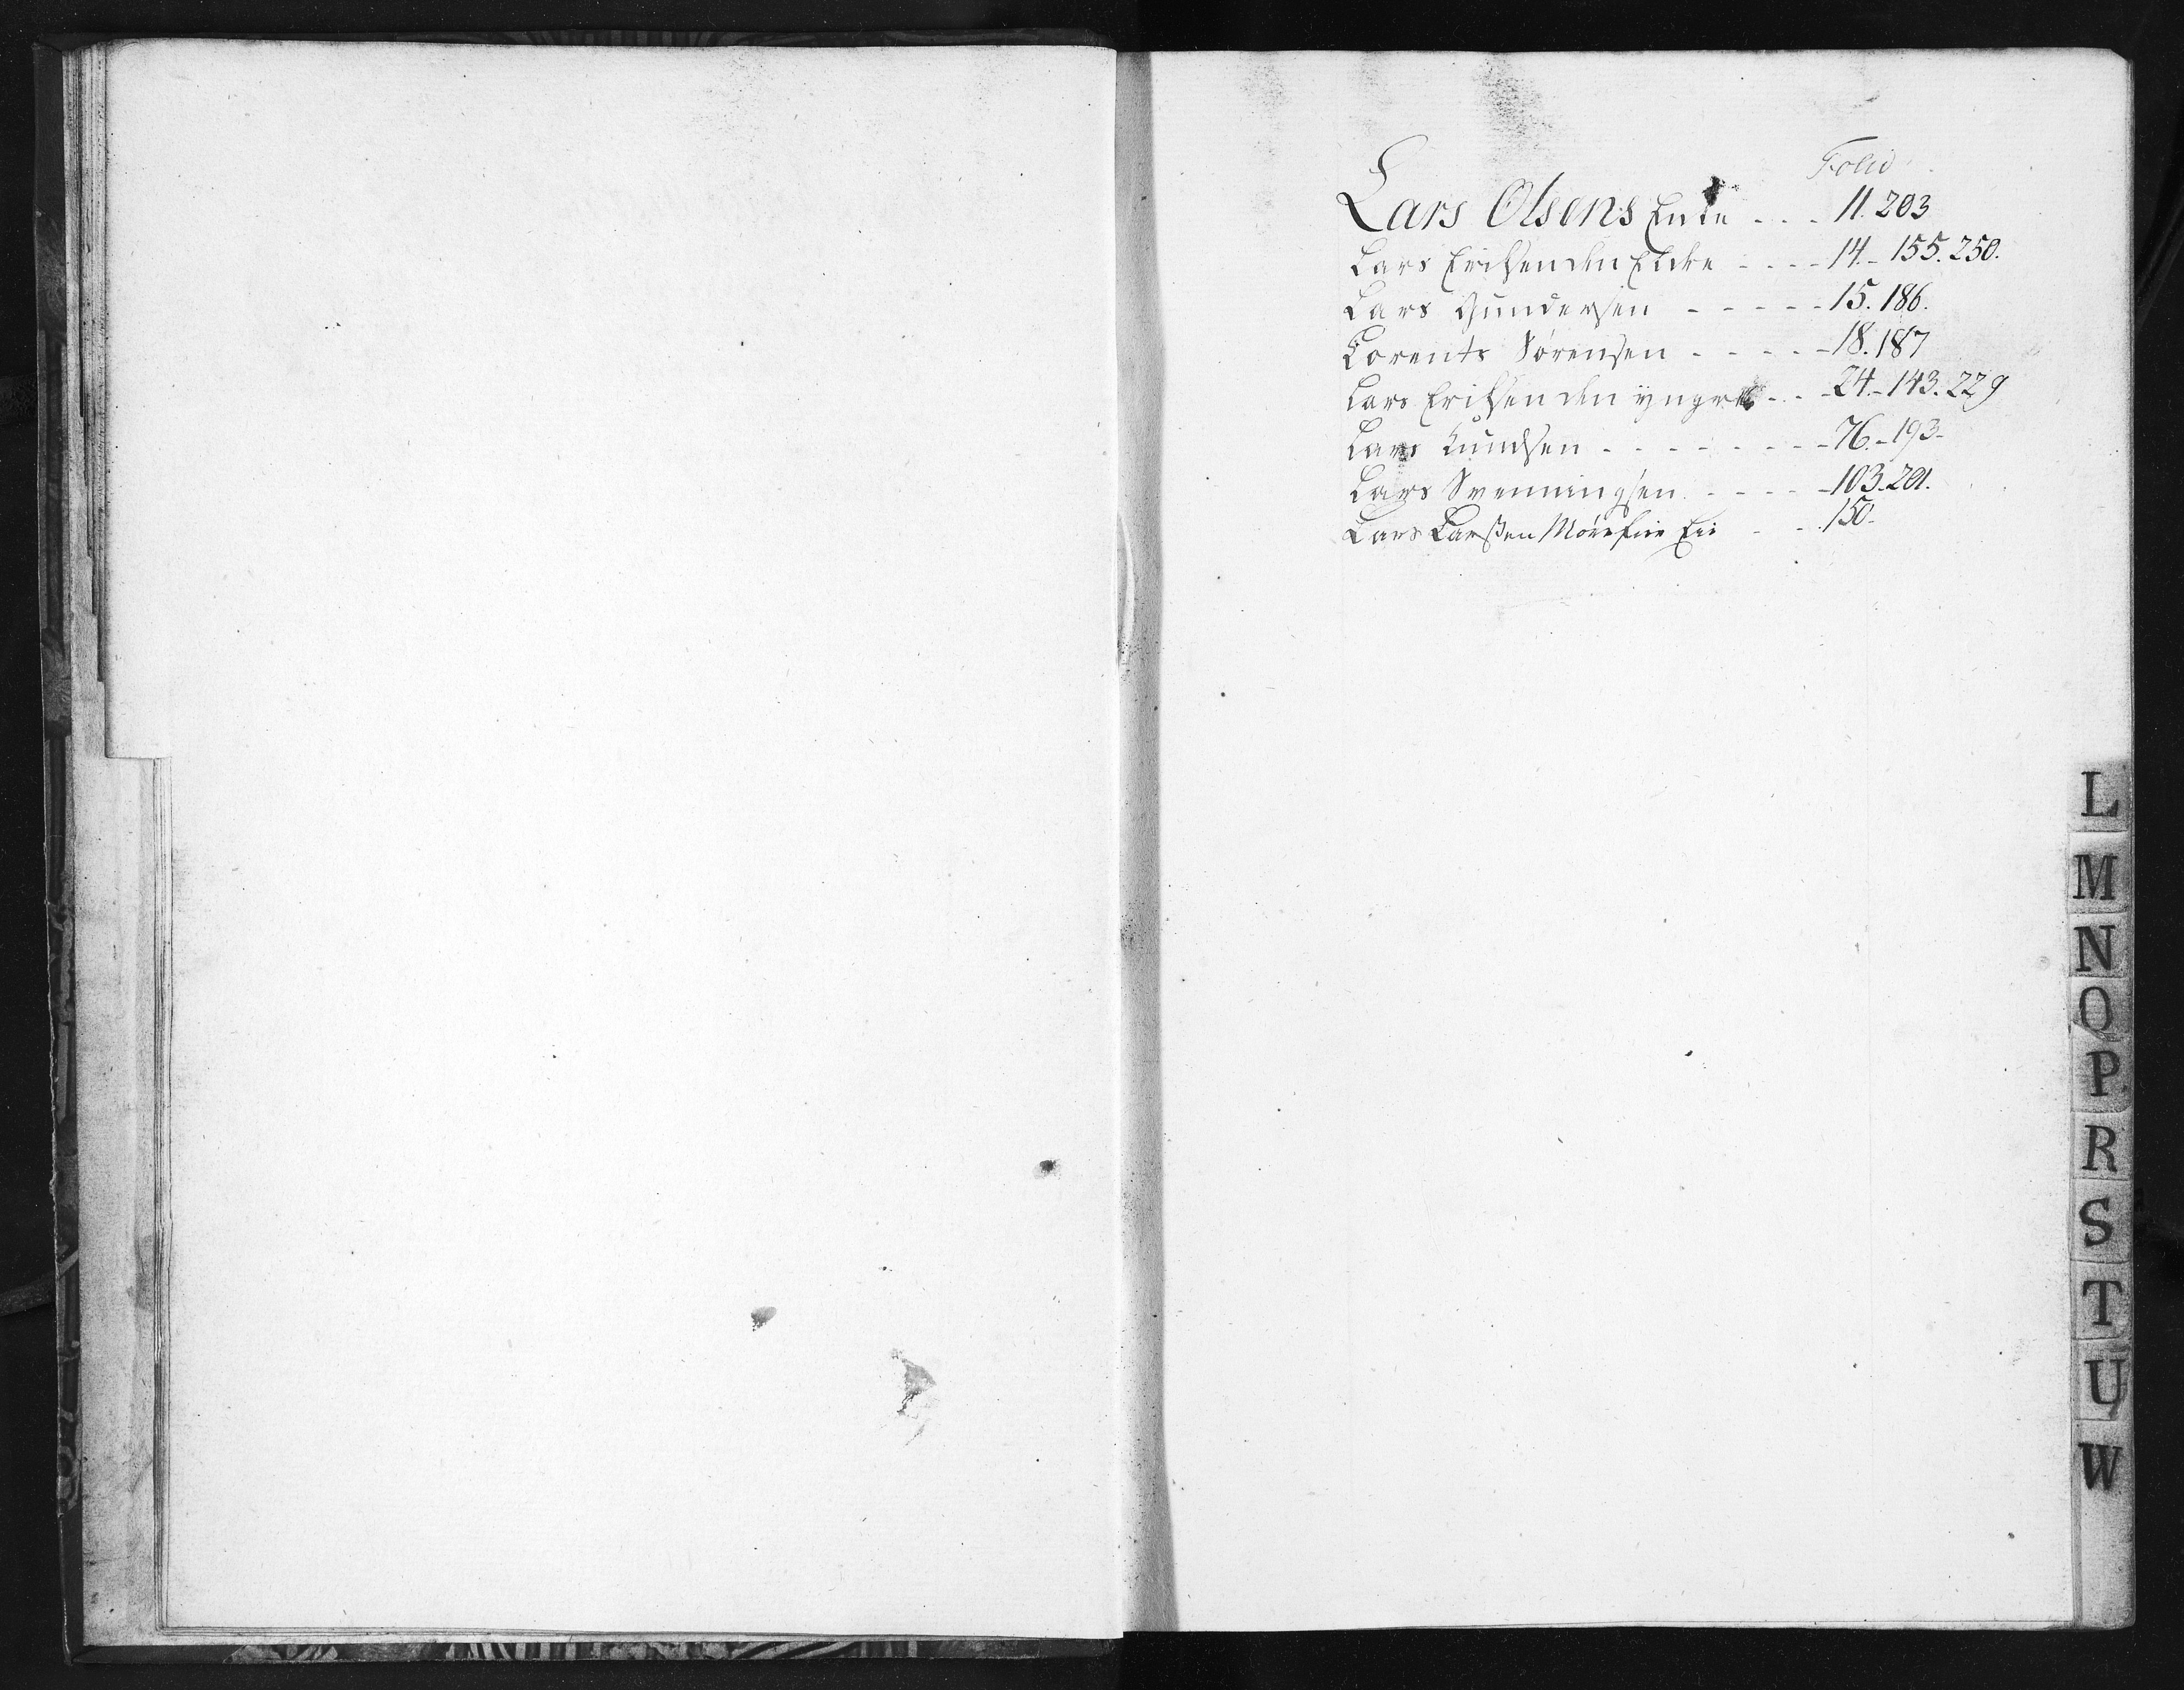 Folio
Lars Olsens Enke - - - 11. 203
Lars Erichsen den Eldre - - - - 14 - 155. 250.
Lars Gundersen - - - - - 15. 186.
Lorents Sørensen - - - - - 18. 187
Lars Erichsen den yngre - - - 24 - 143. 229
Lars Knudsen - - - - - - - - 76 - 193 -
Lars Svenningsen - - - - - 103. 201.
Lars Larssen - - - 150 -
L
M
N
O
P
R
S
T
U
W